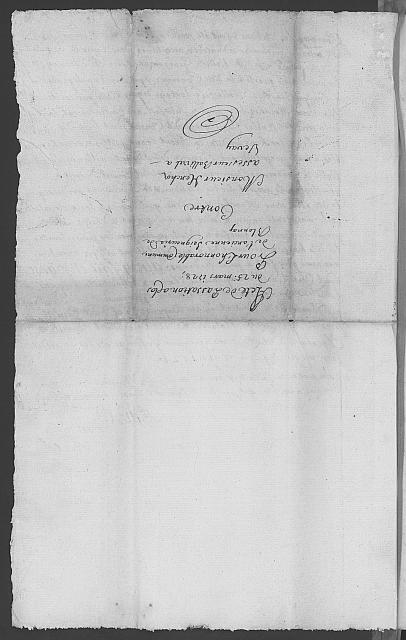 Acte de Passation
du 25. mars 1728,
Pour L'honnorable Commune
De L'ancienne Seigneurie De
Blonay
Contre
Monsieur
assesseur Ballivel a
Vevay